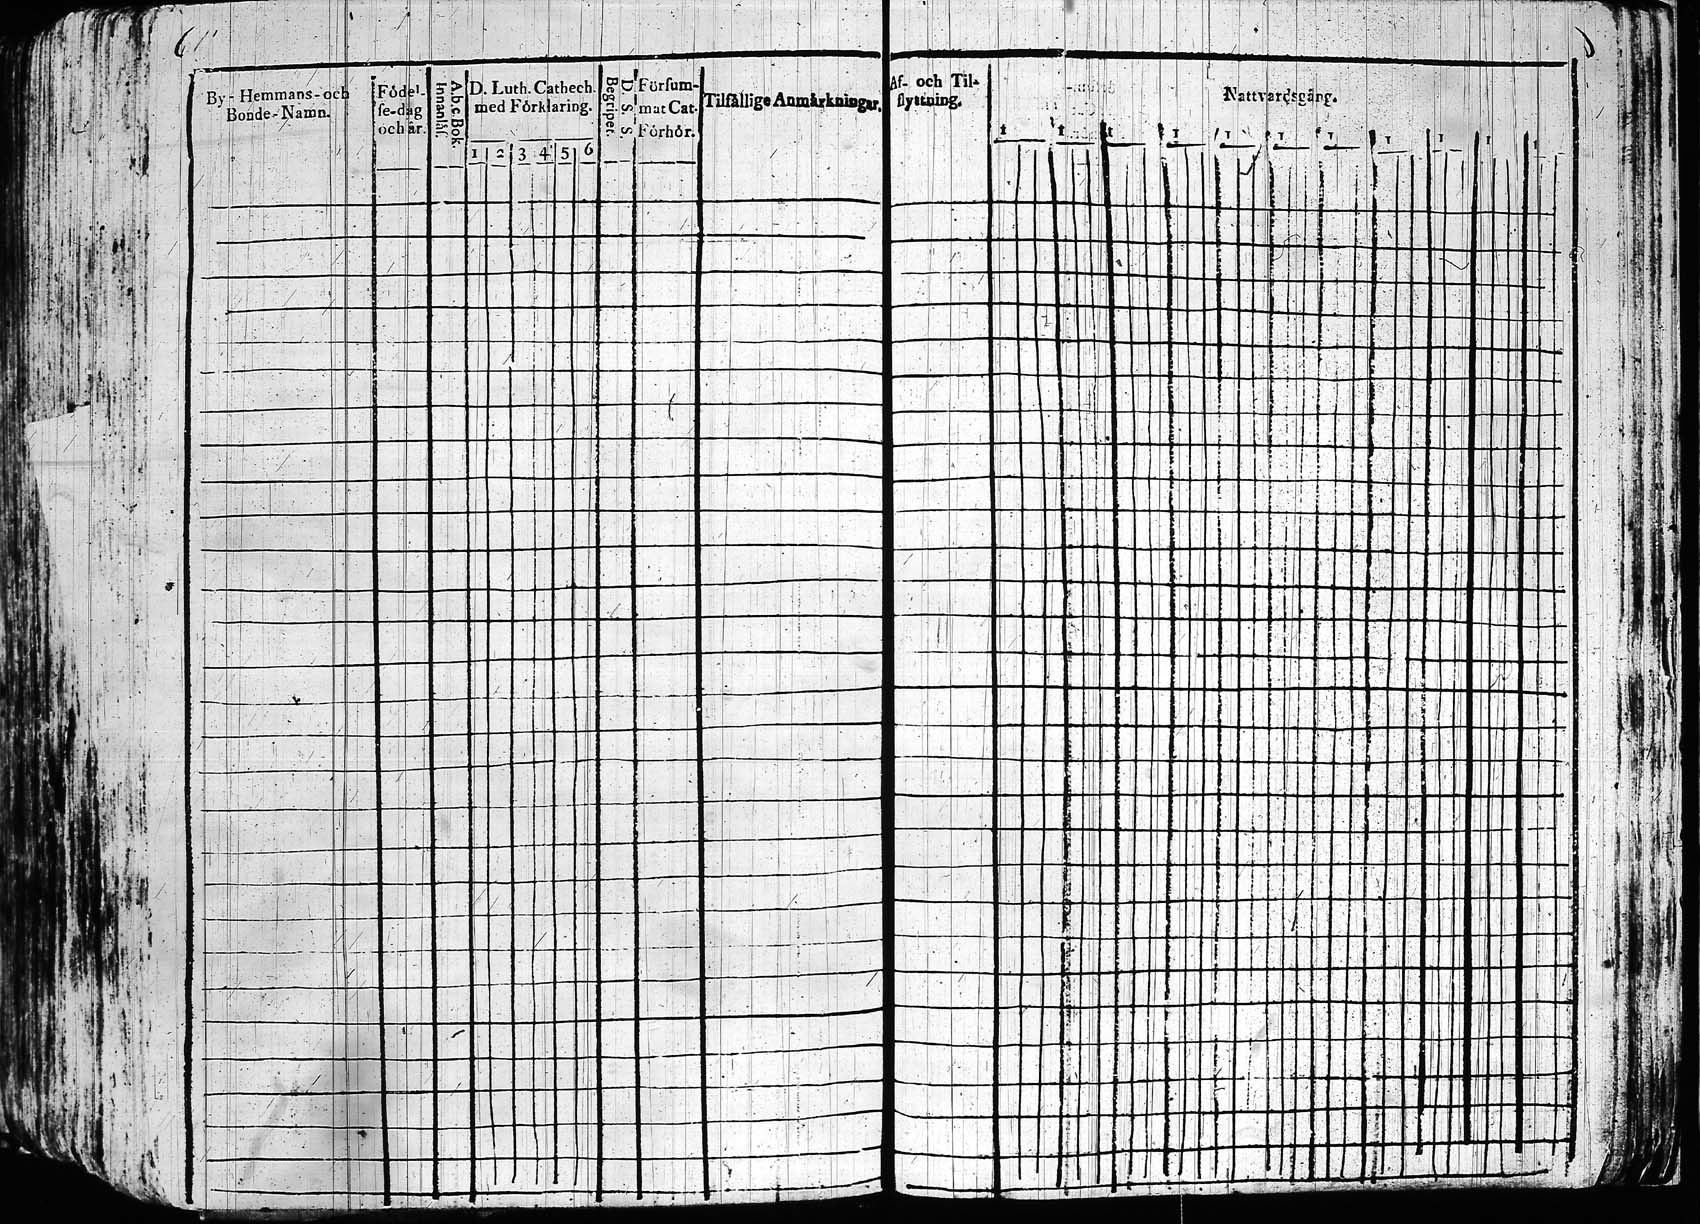 By- Hemmans- och
Bonde- Namn.
Födel-
se-dag
och år.
A.b.c.Bok.
Innanläs.
D. Luth. Cathech.
med Förklaring.
1 2 3 4 5 6
D. S. S.
Begriper.
Försum-
mat Cat-
Förhör.
Tilfällige Anmärkningar.
Af- och Til-
flyttning.
Nattvardsgång.
1 1 1 1 1 1 1 1 1 1 1